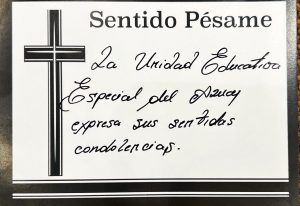 Sentido Pésame
La Unidad Educativa
Especial del Azuay
expresa sus sentidas
condolencias.